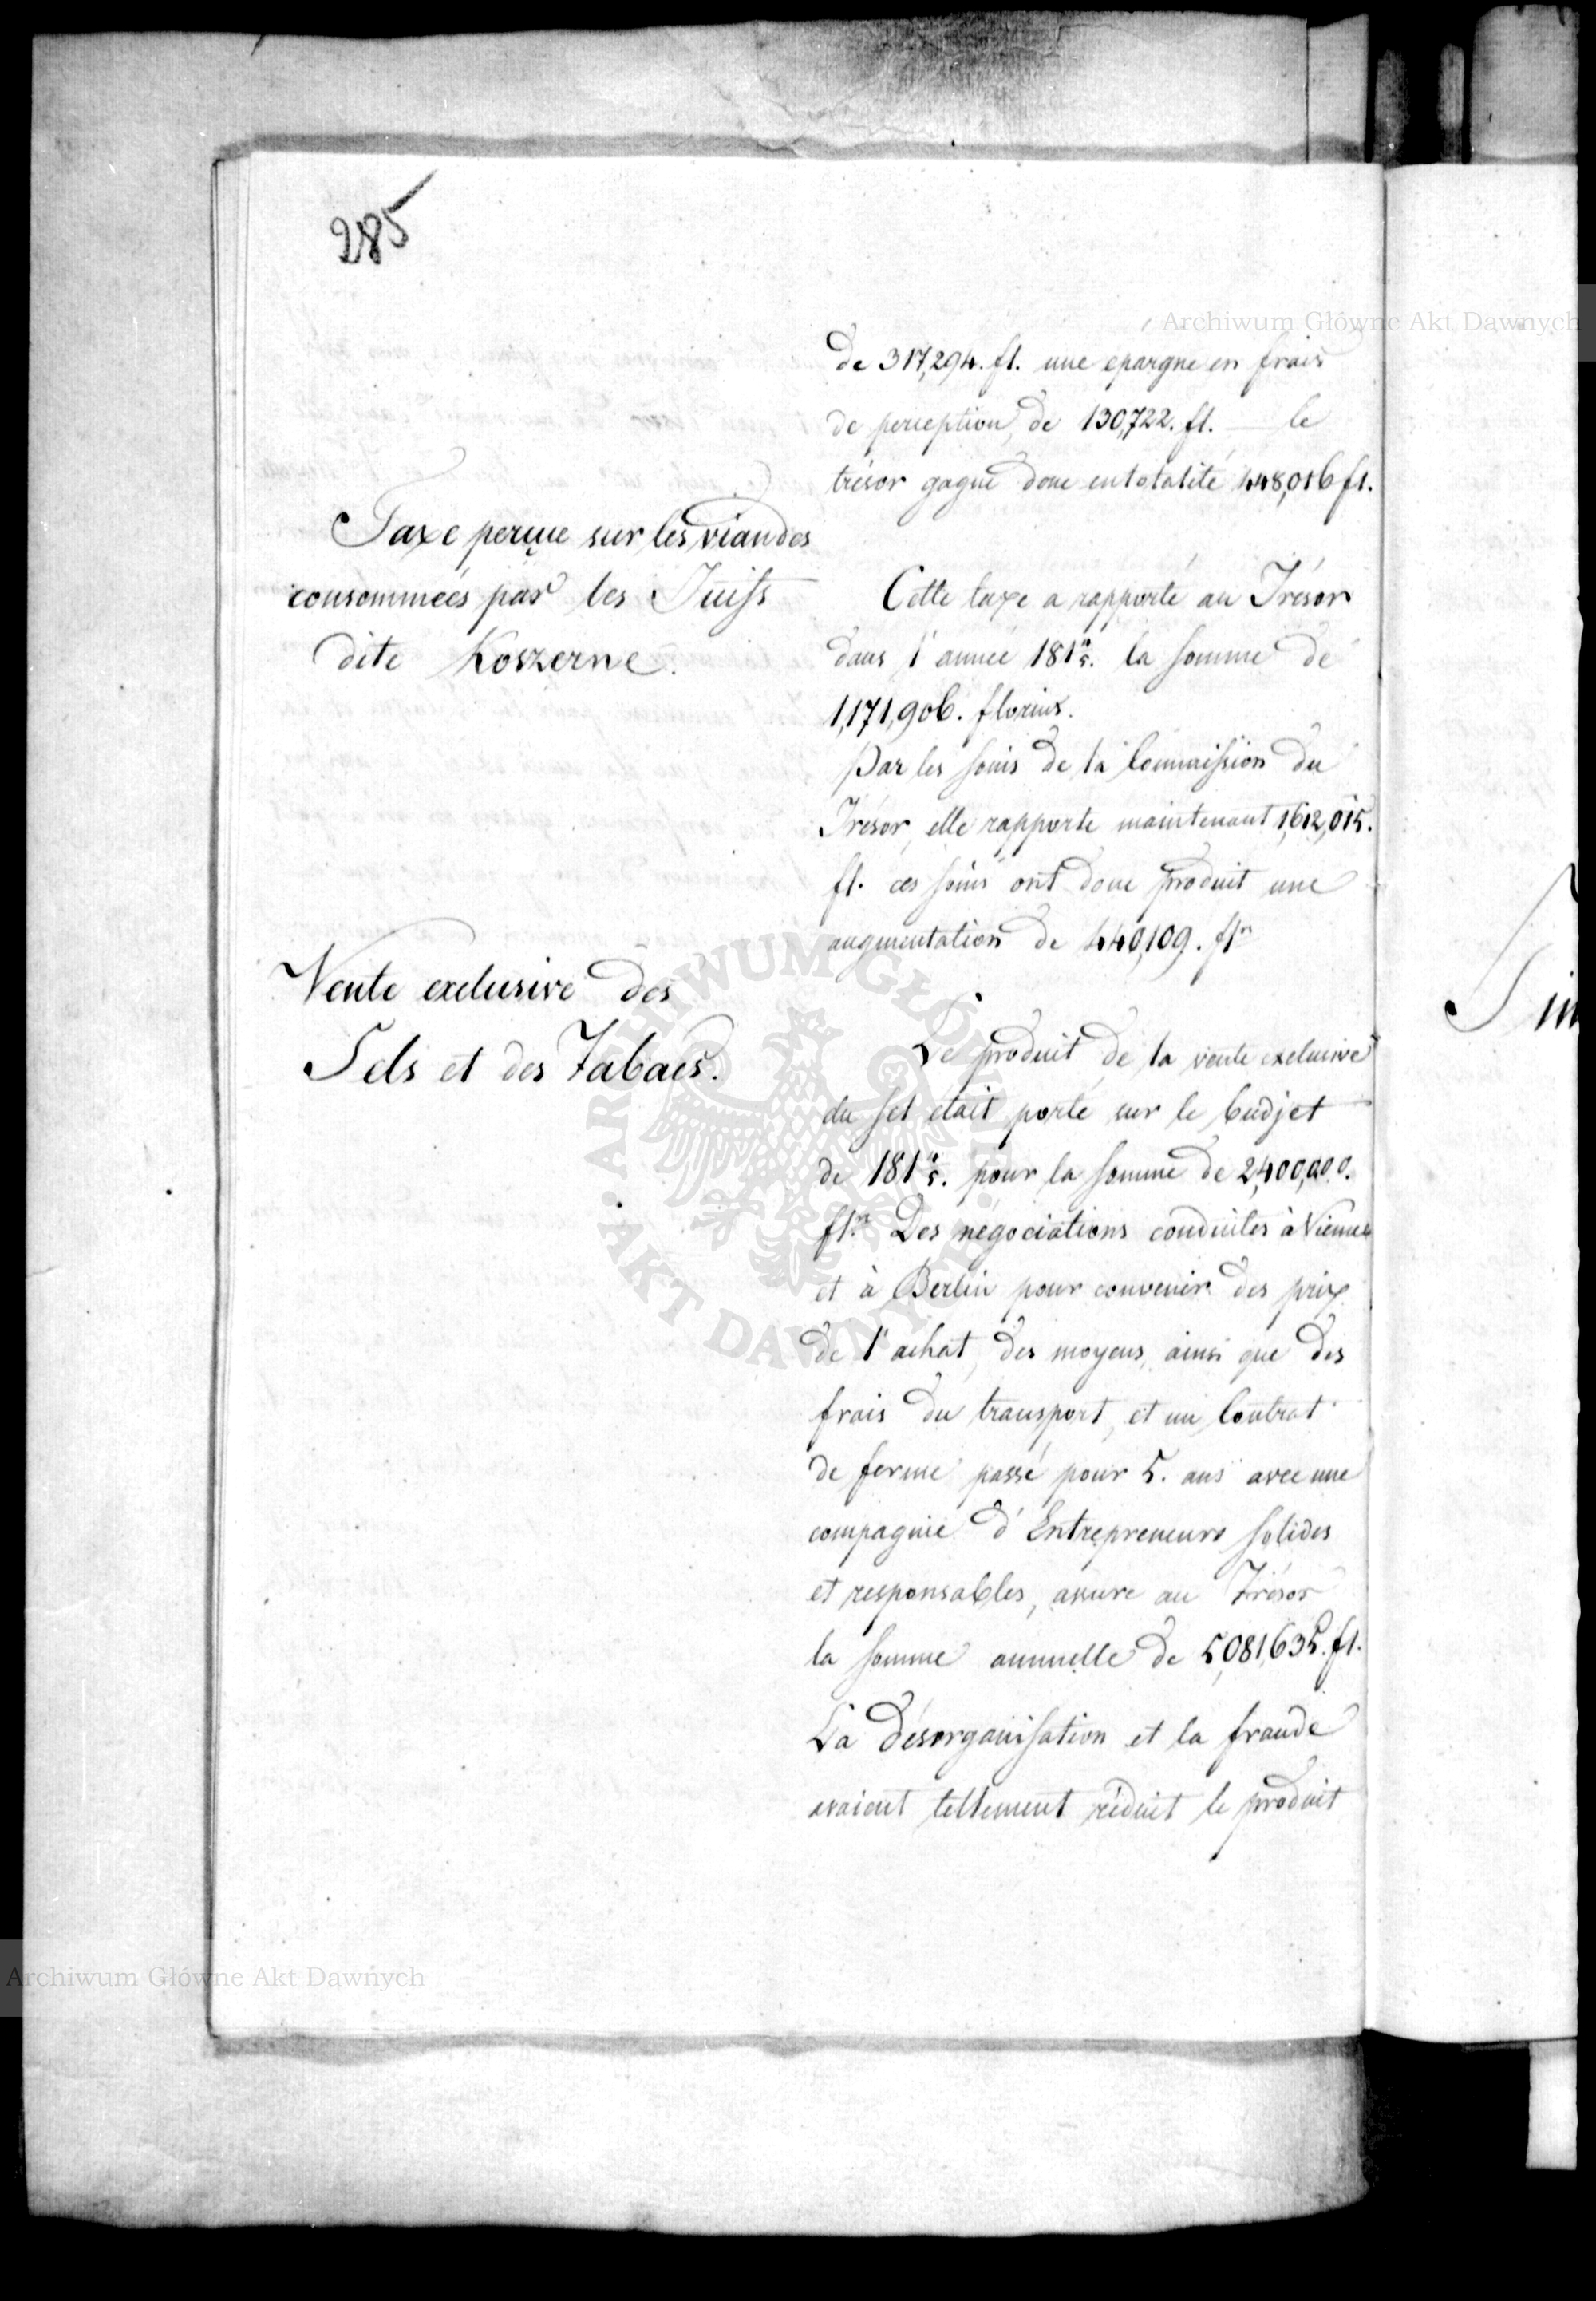 285
de 317,294. fl. une epargne en frais
de perception, de 130,722. fl. — le
trésor gagne donc en totalité 448,016 fl.
Taxe perçue sur les viandes
consommées par les Juifs
dite Koszerne.
Cette taxe a rapporté au Trésor
dans l'année 181 4/5. la somme de
1,171,906. florins.
Par les soins de la Commission du
Trésor, elle rapporte maintenant 1,612,015.
fl. ces soins ont donc produit une
augmentation de 440,109. fln
Vente exclusive des
Sels et des Tabacs.
Le produit de la vente exclusive
du sel était porté sur le budjet
de 181 4/5. pour la somme de 2,400,000.
fln. Des négociations conduites à Vienne
et à Berlin pour convenir des prix
de l'achat, des moyens, ainsi que des
frais du transport, et un Contrat
de ferme passé pour 5. ans avec une
compagnie d'Entrepreneurs solides
et responsables, assure au Trésor
la somme annuelle de 5,081,635. fl.
La désorganisation et la fraude
avaient tellement réduit le produit
Archiwum Główne Akt Dawnych
ARCHIWUM GŁÓWNE AKT DAWNYCH
Archiwum Główne Akt Dawnych